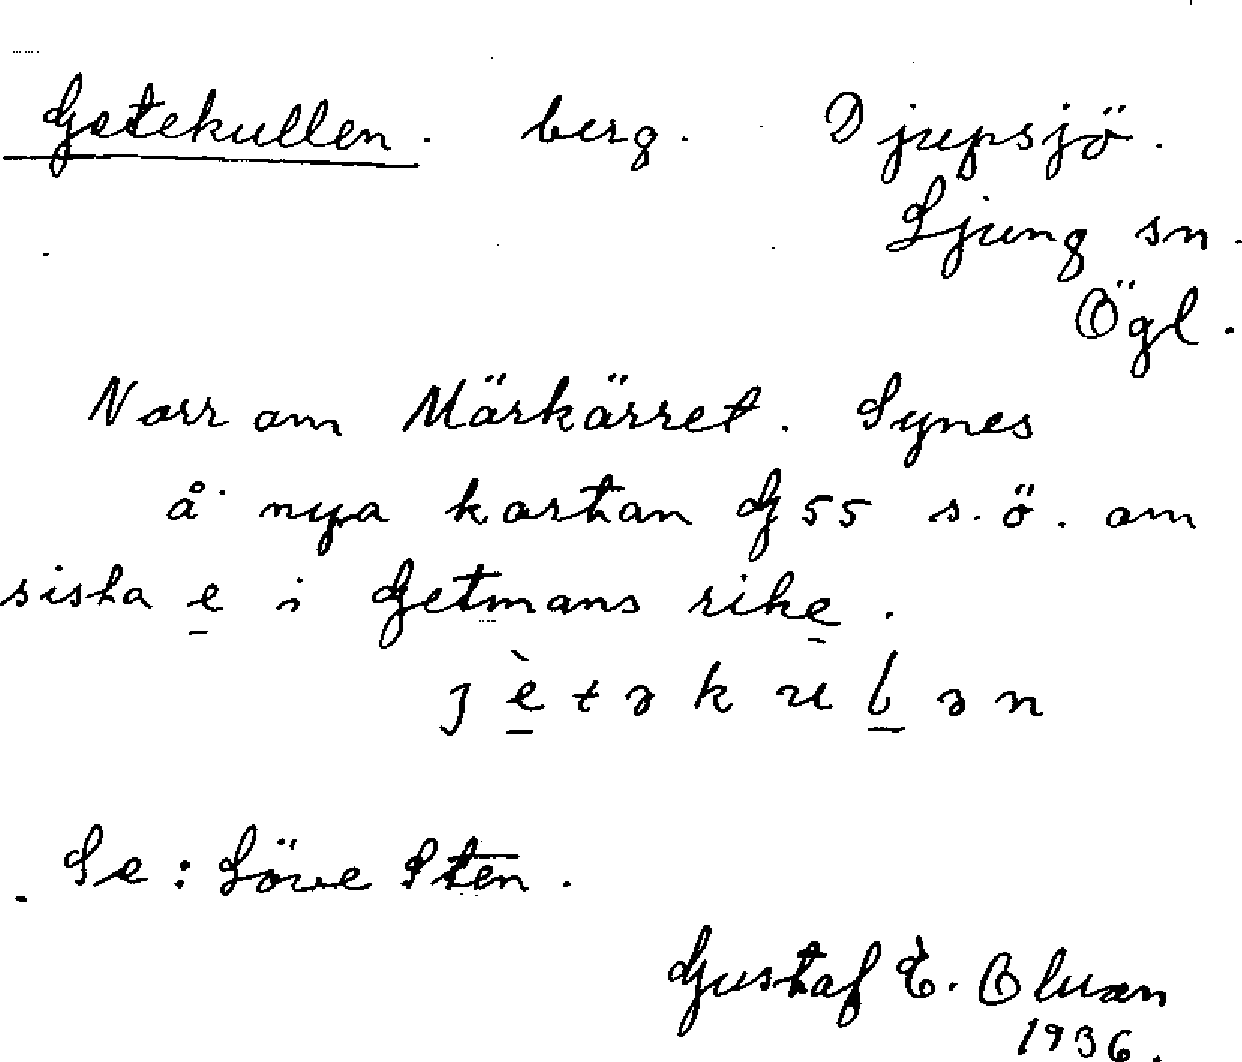 Getekullen. berg. Djupsjö.
Ljung sn.
Ögl.
Norr om Märkärret. Synes
å nya kartan G 55 s.ö. om
sista e i Getmans rike.
ȷ è t ə k u l ə n
Se: Löwe Sten.
Gustaf E.
1936.